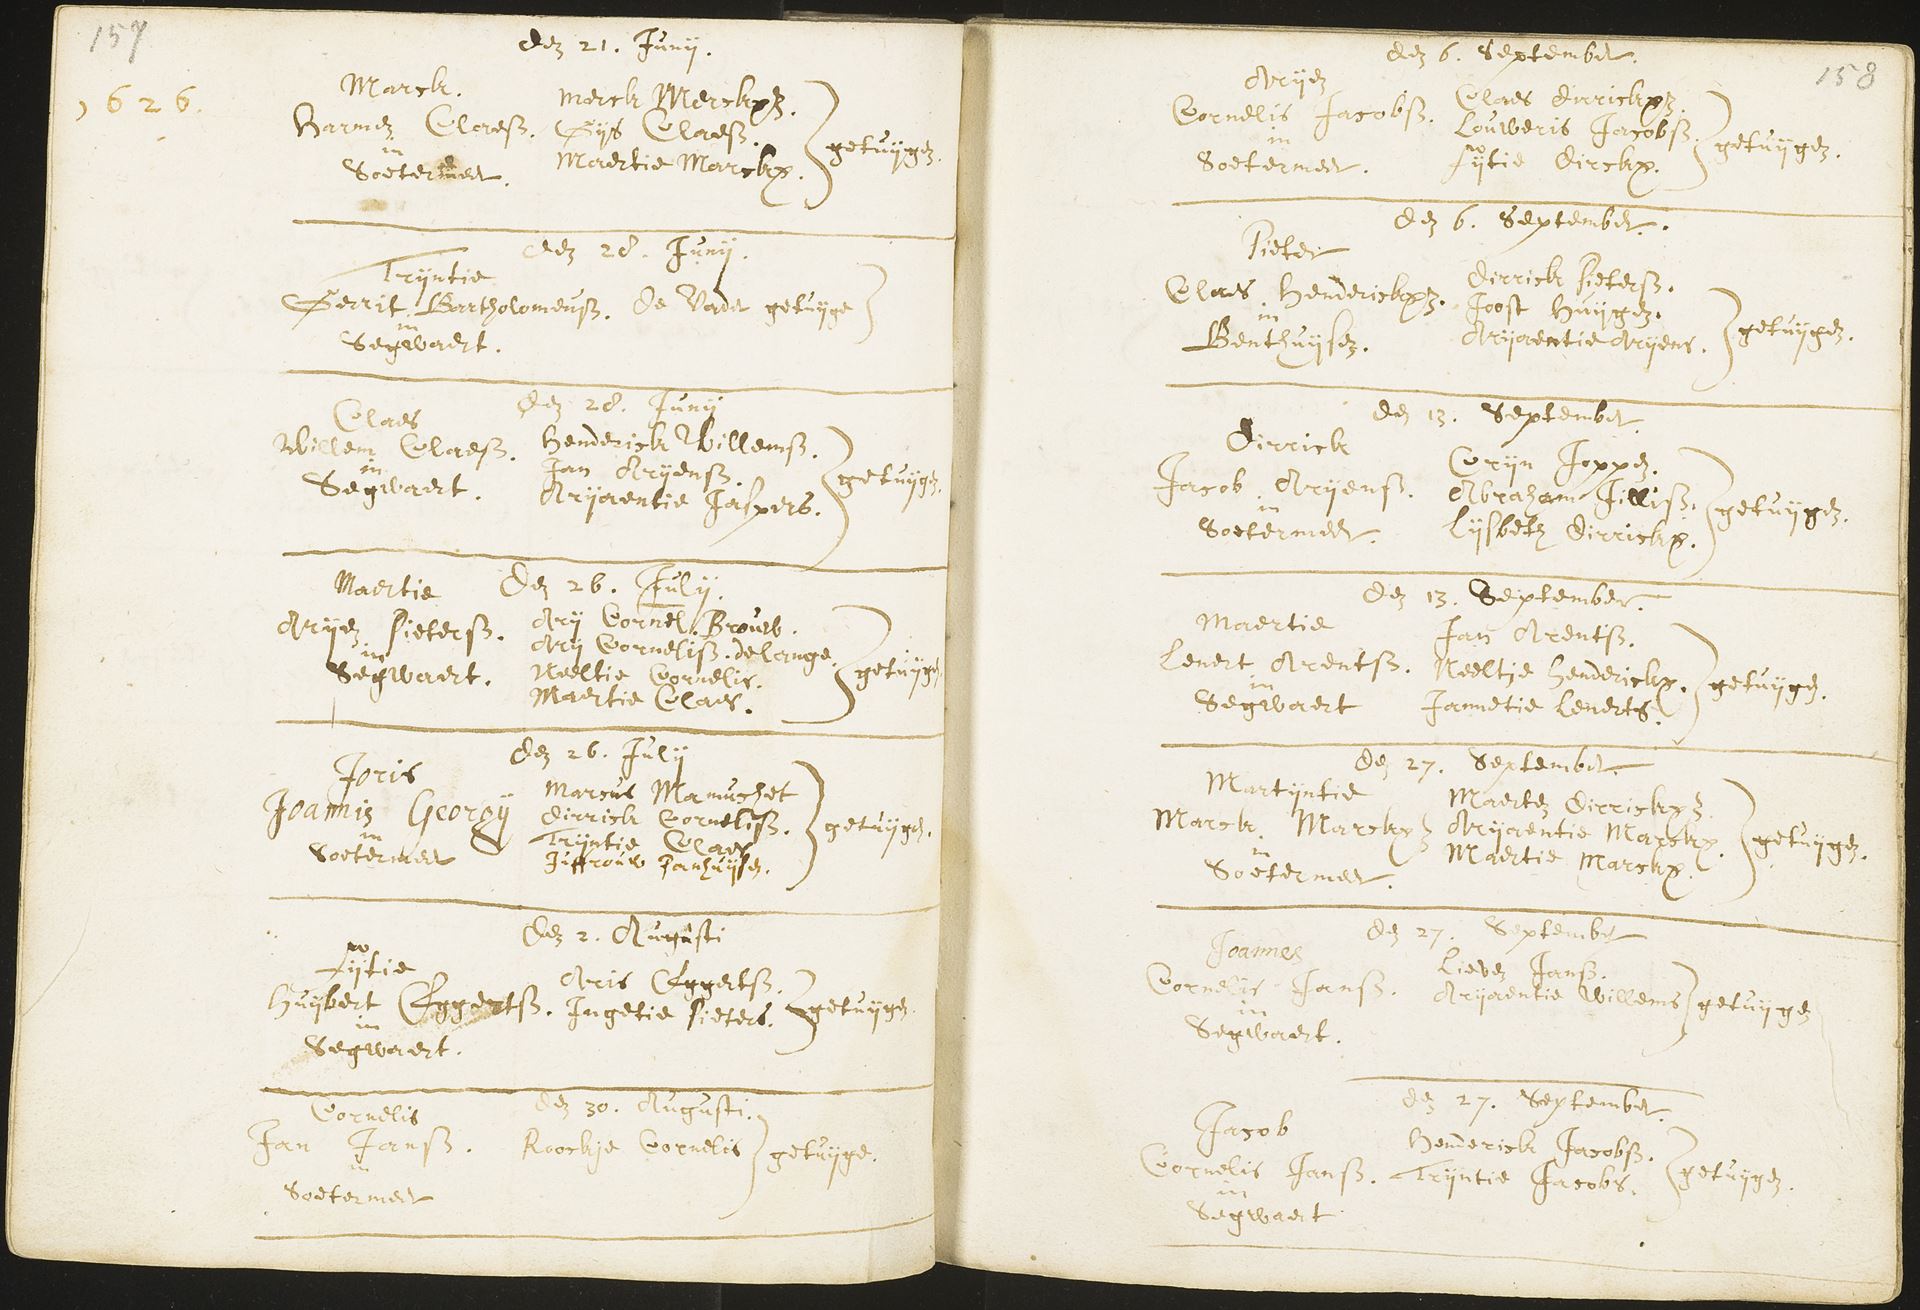 157
1626.
den 21. Junij.
Marck.
Harmen Claesß.
in
Soetermeer.
Merck Merckxz.
Gijs Claesß.
Maertie Marckx.
getuijgen.
den 28. Junij.
Trijntie
Gerrit Bartholomeusß. de Vader getuijge
in
Segwaert.
den 28. Junij
Claes
Willem Claesß.
in
Segwaert.
Henderick Willemsß.
Jan Arijensß.
Arijaentie Jaspers.
getuijgen.
den 26. Julij.
Maertie
Arijen Pietersß.
in
Segwaert.
Arij Cornel. Brouw.
Arij Cornelisß. de Lange.
Neeltie Cornelis.
Maertie Claes.
getuijgen
den 26. Julij
Joris
Joannis Georgij
in
Soetermeer
Marcus Mamuchet
Dirrick Cornelisß.
Trijntie Claes
Juffrouw Panhuijsen.
getuijgen.
den 2. Augusti
Fijtie
Huijbert Eggertsß.
in
Segwaert.
Aris Eggertsß.
Ingetie Pieters.
getuijgen.
den 30. Augusti.
Cornelis
Jan Jansß.
in
Soetermeer
Roockje Cornelis
getuijge.
158
den 6. September.
Arijen
Cornelis Jacobsß.
in
Soetermeer.
Claes Dirrickxz.
Louweris Jacobsß.
Fijtie Dirckx.
getuijgen.
den 6. September.
Pieter
Claes Henderickxz.
in
Benthuijsen.
Dirrick Pietersß.
Joost Huijgen.
Arijaentie Arijens.
getuijgen.
den 13. September.
Dirrick
Jacob Arijensß.
in
Soetermeer.
Corijn Joppen.
Abraham Jillisß.
Lijsbeth Dirrickx.
getuijgen.
den 13. September.
Maertie
Lenert Arentsß.
in
Segwaert
Jan Arentsß.
Neeltje Henderickx.
Jannetie Lenerts.
getuijgen.
den 27. September.
Martijntie
Marck Marckxz
in
Soetermeer.
Maerten Dirrickxz.
Arijaentie Marckx.
Maertie Marckx.
getuijgen.
den 27. September
Joannes
Cornelis Jansß.
in
Segwaert.
Lieven Jansß.
Arijaentie Willems
getuijgen
den 27. September.
Jacob
Cornelis Jansß.
in
Segwaert
Henderick Jacobsß.
Trijntie Jacobs.
getuijgen.